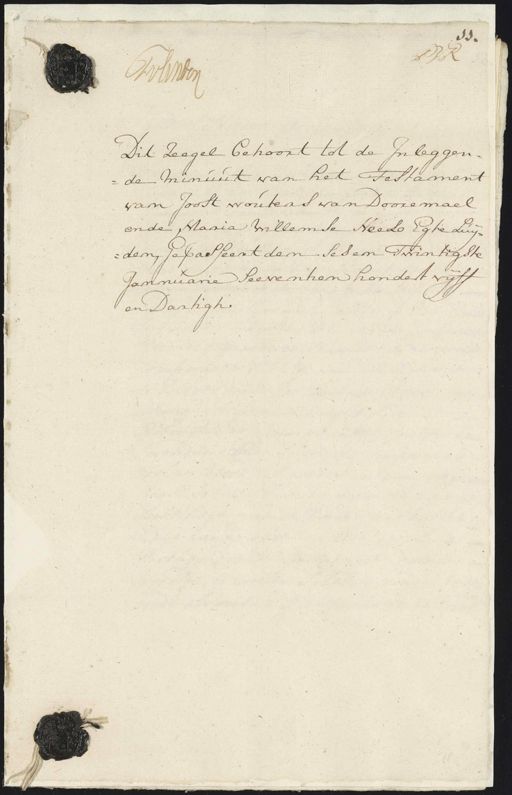 11.
Dit Zeegel Gehoort tot de Inleggen-
=de Minuut van het Testament
van Joost wouters van Dooremael
ende Maria Willemse Neeso Egte Luij-
=den, Gepasseert den Sesen Twintigste
Jannuarie Seeventhien hondert vijff
en Dartigh.